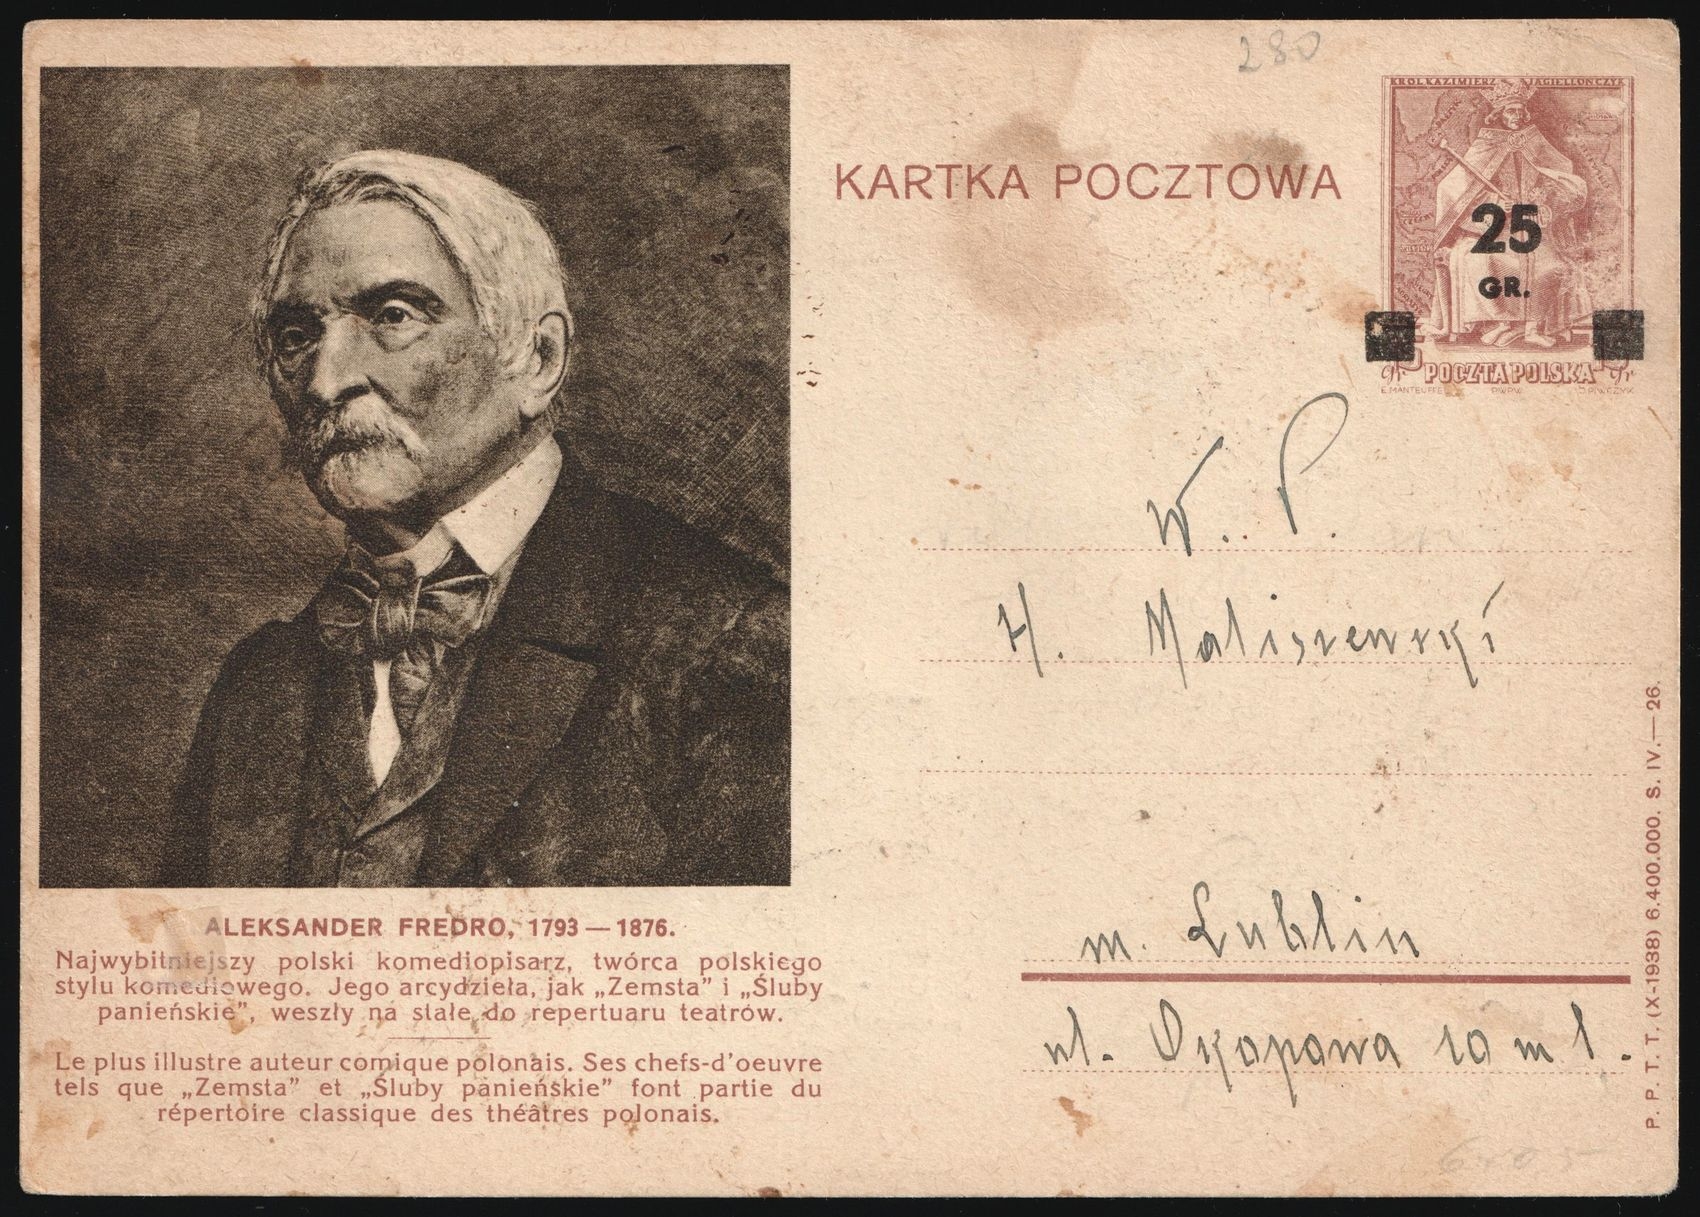 280
KRÓL KAZIMIERZ JAGIELLOŃCZYK
KARTKA POCZTOWA
25
GR.
POCZTA POLSKA
gr
P.W.P.W.
W. P.
H. Maliszewski
m. Lublin
ul. Okopowa 10 m 1.
ALEKSANDER FREDRO, 1793 — 1876.
Najwybitniejszy polski komediopisarz, twórca polskiego
stylu komediowego. Jego arcydzieła, jak „Zemsta” i „Śluby
panieńskie”, weszły na stałe do repertuaru teatrów.
Le plus illustre auteur comique polonais. Ses chefs-d'oeuvre
tels que „Zemsta” et „Śluby panieńskie” font partie du
répertoire classique des théâtres polonais.
P. P. T. T. (X-1938) 6.400.000. S. IV.—26.